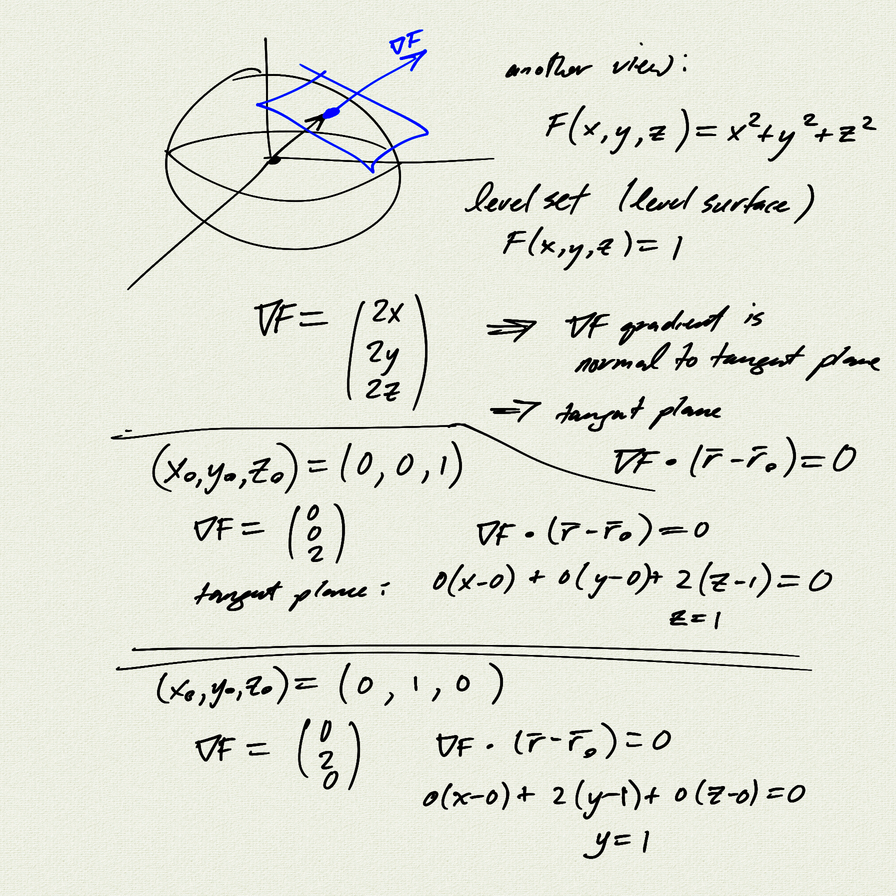 ∇F
another view:
F(x,y,z) = x²+y²+z²
level set (level surface)
F(x,y,z) = 1
∇F = (2x
2y
2z)
⇒ ∇F gradient is
normal to tangent plane
⇒ tangent plane
∇F · (r̄ - r̄₀) = 0
(x₀,y₀,z₀) = (0, 0, 1)
∇F = (0
0
2)
∇F · (r̄ - r̄₀) = 0
tangent plane: 0(x-0) + 0(y-0) + 2(z-1) = 0
z = 1
(x₀,y₀,z₀) = (0, 1, 0)
∇F = (0
2
0)
∇F · (r̄ - r̄₀) = 0
0(x-0) + 2(y-1) + 0(z-0) = 0
y = 1